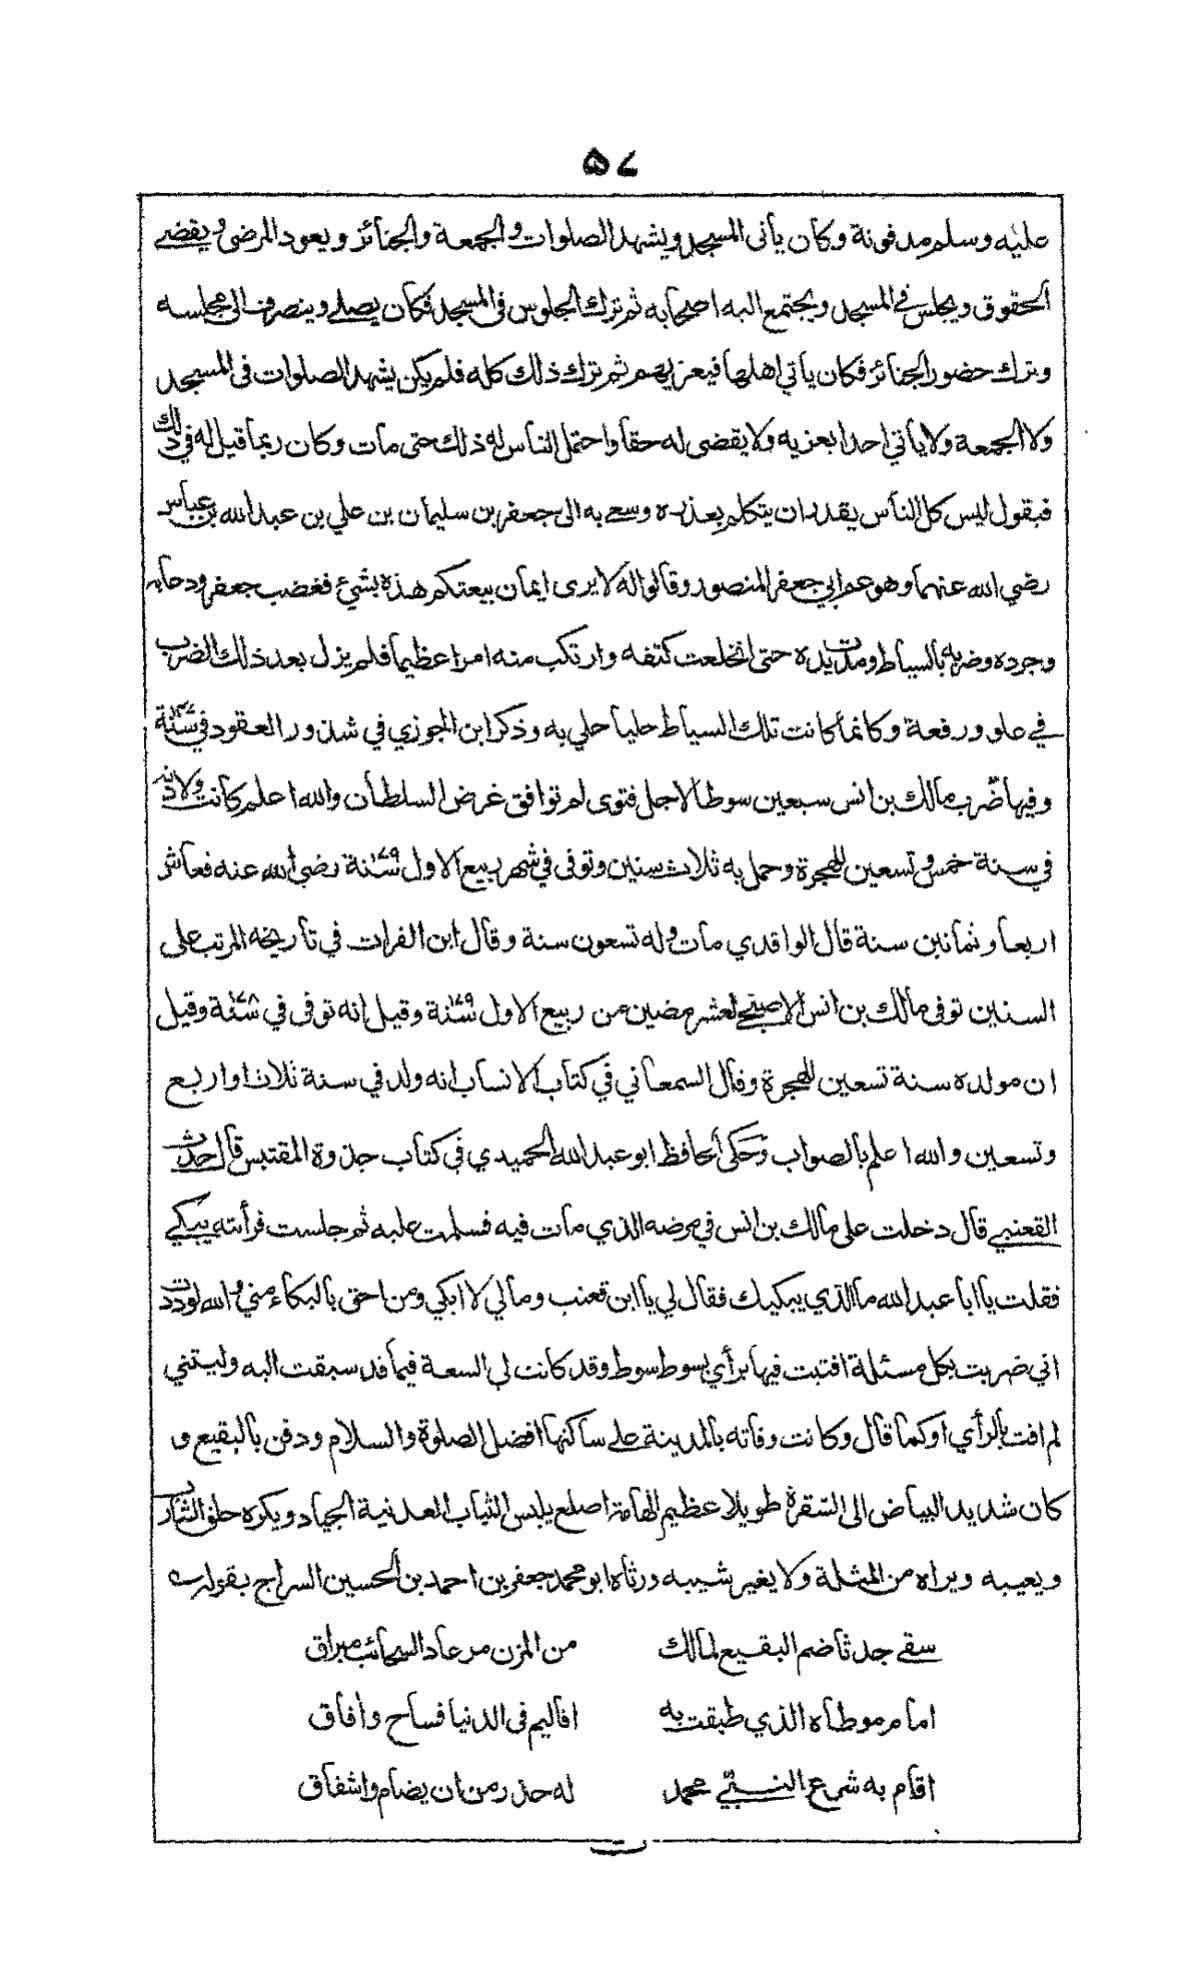 ٥٧
عليه وسلم مدفونة وكان يأتى المسجد ويشهد الصلوات والجمعة والجنائز ويعود المرضى ويقضے
الحقوق ويجلس في المسجد ويجتمع اليه اصحابه ثم ترك الجلوس فى المسجد فكان يصلے وينصرف الى مجلسه
وترك حضور الجنائز فكان يأتي اهلها فيعزيهم ثم ترك ذلك كله فلم يكن يشهد الصلوات فى المسجد
ولا الجمعة ولا يأتي احدا يعزيه ولا يقضى له حقا واحتمل الناس له ذلك حتى مات وكان ربما قيل له في ذلك
فيقول ليس كل الناس يقدر ان يتكلم بعذره وسعے به الى جعفر بن سليمان بن علي بن عبد الله بن عباس
رضي الله عنهما وهو عم ابي جعفر المنصور وقالوا له لا يرى ايمان بيعتكم هذه بشيء فغضب جعفر ودعا به
وجرده وضربه بالسياط ومدت يده حتى انخلعت كتفه وارتكب منه امرا عظيما فلم يزل بعد ذلك الضرب
في علو ورفعة وكانما كانت تلك السياط حليا حلي به وذكر ابن الجوزي في شذور العقود في سنة ١٤٧
وفيها ضرب مالك بن انس سبعين سوطا لاجل فتوى لم توافق غرض السلطان والله اعلم كانت ولادته
في سنة خمس وتسعين للهجرة وحمل به ثلاث سنين وتوفى في شهر ربيع الاول سنة ١٧٩ رضي الله عنه فعاش
اربعا وثمانين سنة قال الواقدي مات وله تسعون سنة وقال ابن الفرات في تأريخه المرتب على
السنين توفى مالك بن انس الاصبحے لعشر مضين من ربيع الاول سنة ١٧٩ وقيل انه توفى في سنة ١٧٨ وقيل
ان مولده سنة تسعين للهجرة وقال السمعاني في كتاب الانساب انه ولد في سنة ثلاث او اربع
وتسعين والله اعلم بالصواب وحكى الحافظ ابو عبد الله الحميدي في كتاب جذوة المقتبس قال حدث
القعنبے قال دخلت على مالك بن انس في مرضه الذي مات فيه فسلمت عليه ثم جلست فرأيته يبكے
فقلت يا ابا عبد الله ما الذي يبكيك فقال لي يا ابن قعنب ومالي لا ابكي ومن احق بالبكاء مني والله لوددت
اني ضربت بكل مسئلة افتيت فيها برأي بسوط سوط وقد كانت لي السعة فيما قد سبقت اليه وليتني
لم افت بالرأي او كما قال وكانت وفاته بالمدينة علے ساكنها افضل الصلوة والسلام ودفن بالبقيع و
كان شديد البياض الى الشقرة طويلا عظيم الهامة اصلع يلبس الثياب العدنية الجياد ويكره حلق الشارب
ويعيبه ويراه من المثلة ولا يغير شيبه ورثاه ابو محمد جعفر بن احمد بن الحسين السراج بقوله
سقے جدثا ضم البقيع لمالك من المزن مرعاد السحائب مبراق
امام موطاه الذي طبقت به اقاليم فى الدنيا فساح وآفاق
اقام به شرع النبے محمد له حذر من ان يضام واشفاق